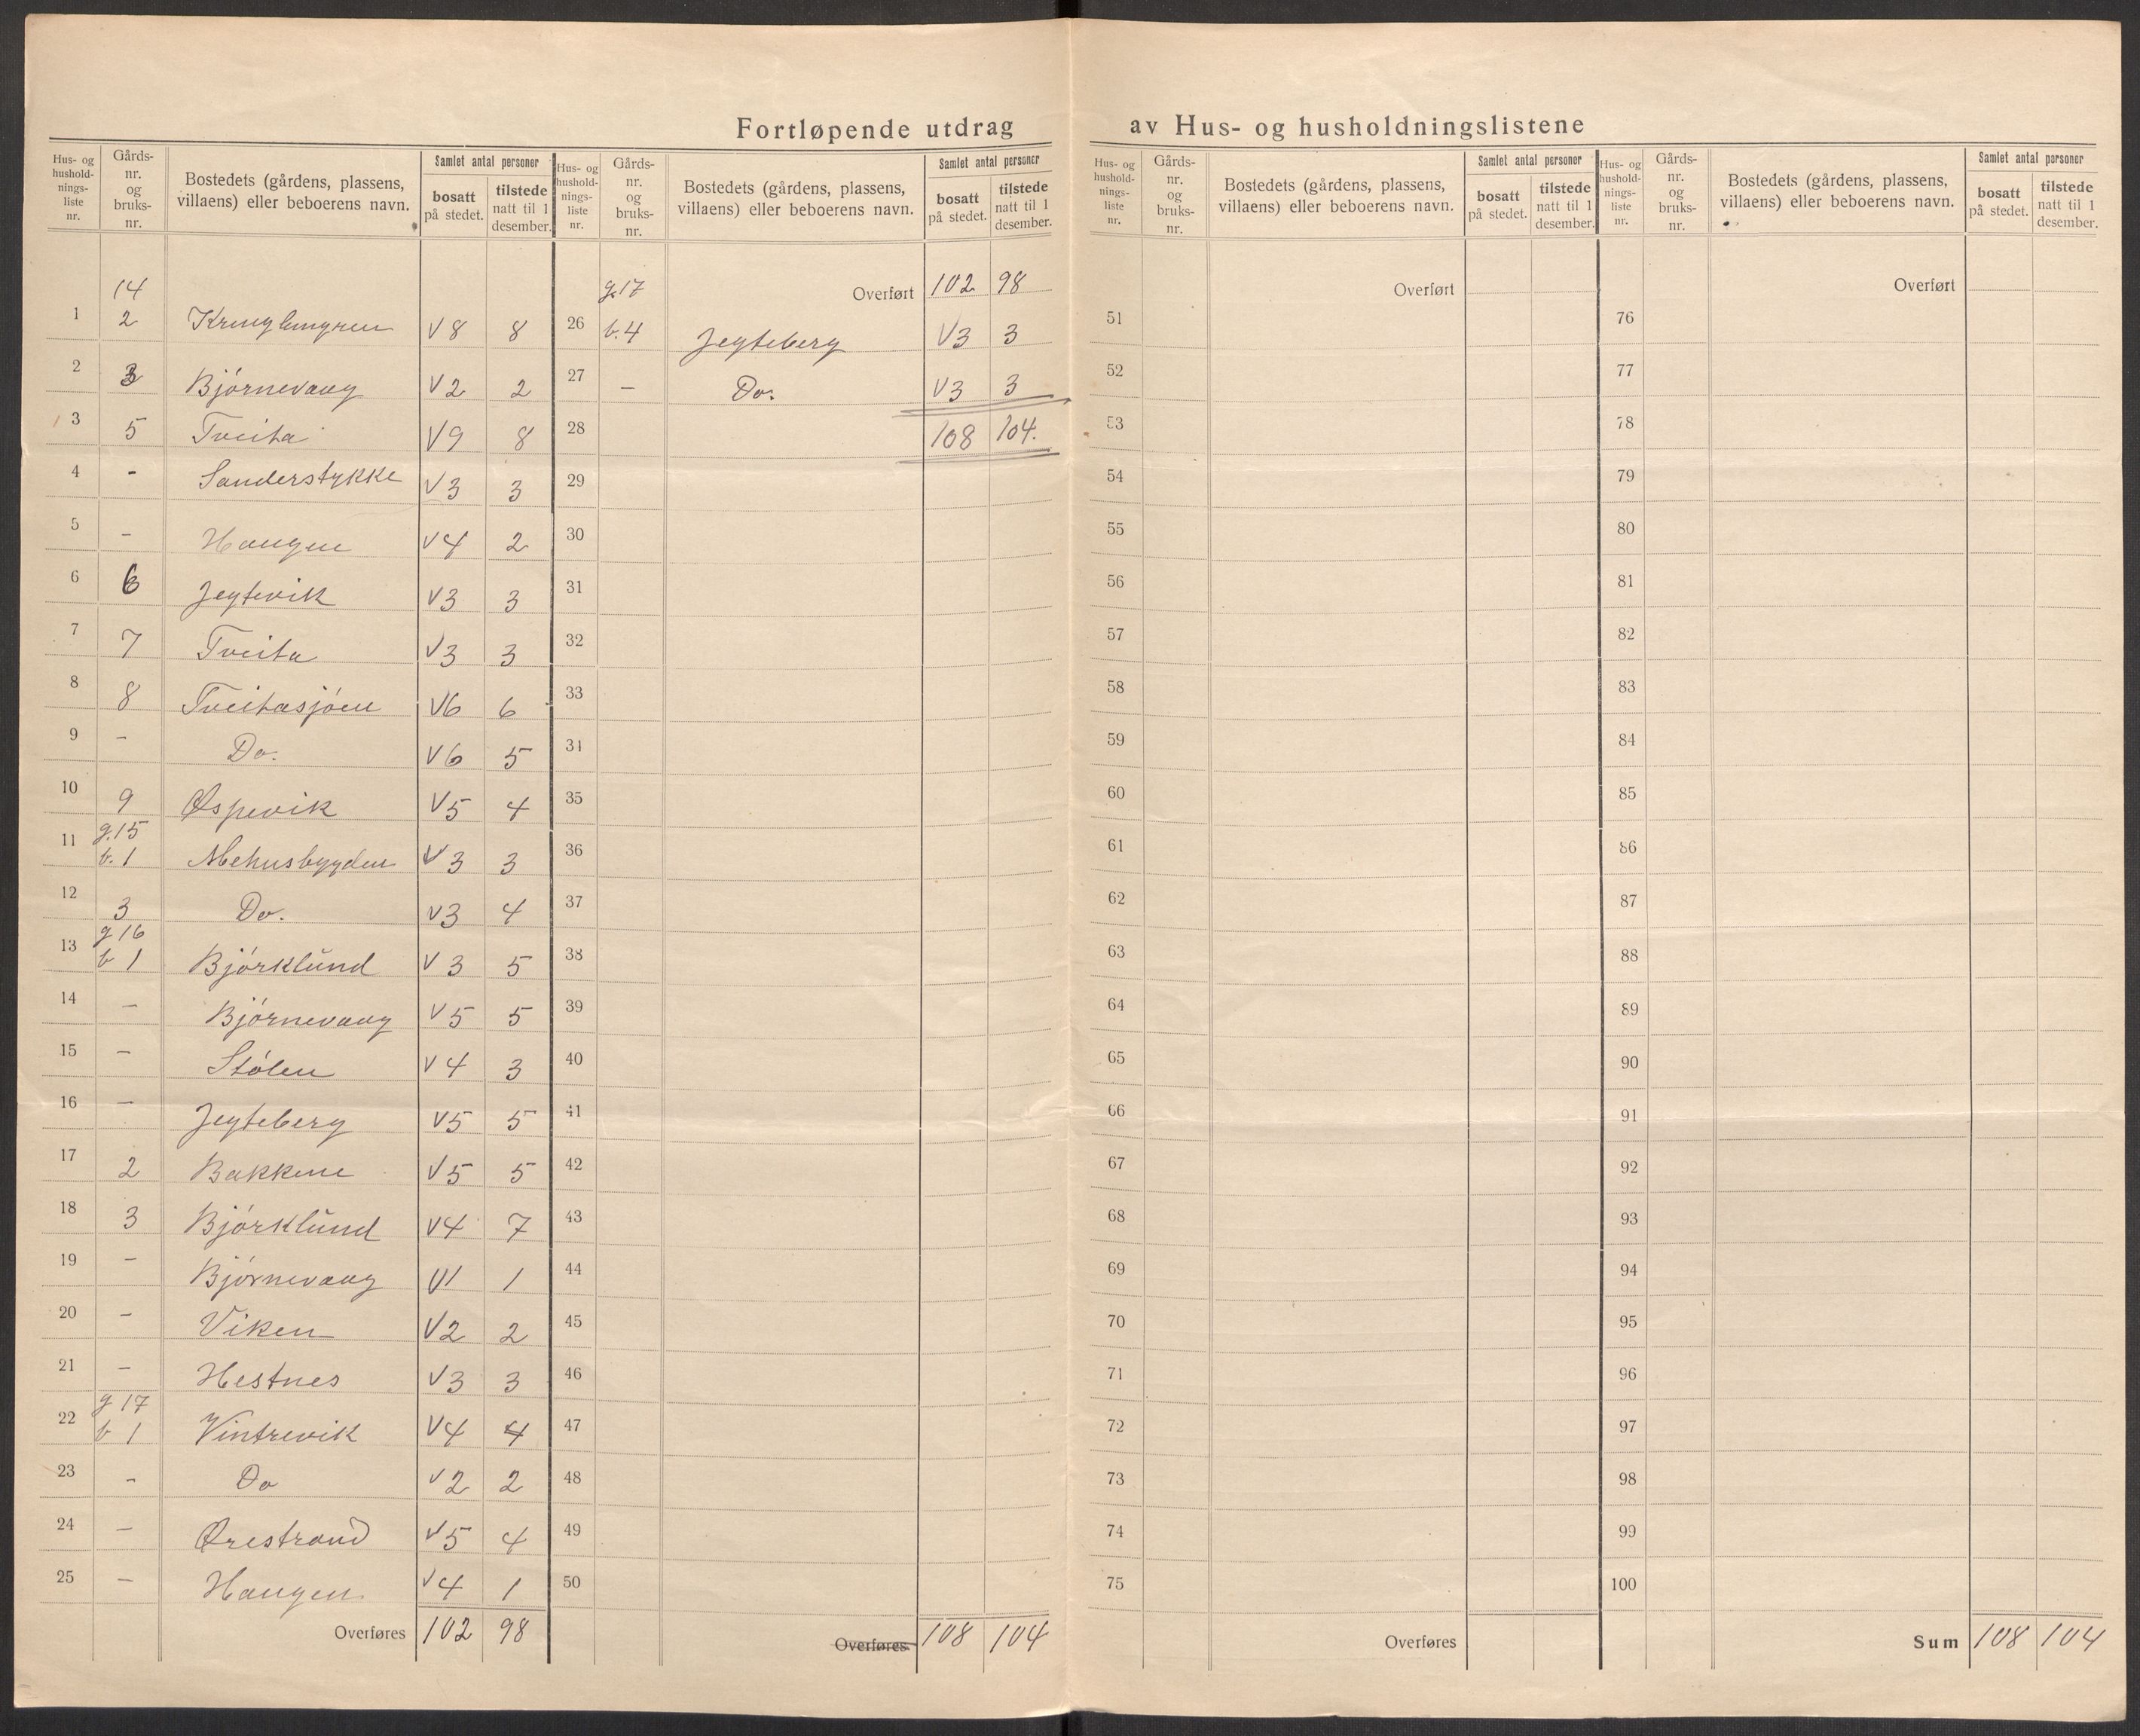 Fortløpende utdrag av Hus- og husholdningslistene
Hus- og hushold-nings-liste nr. | Gårds-nr. og bruks-nr. | Bostedets (gårdens, plassens, villaens) eller beboerens navn. | Samlet antal personer | bosatt på stedet. | tilstede natt til 1 desember.
Hus- og hushold-nings-liste nr. | Gårds-nr. og bruks-nr. | Bostedets (gårdens, plassens, villaens) eller beboerens navn. | Samlet antal personer | bosatt på stedet. | tilstede natt til 1 desember.
Hus- og hushold-nings-liste nr. | Gårds-nr. og bruks-nr. | Bostedets (gårdens, plassens, villaens) eller beboerens navn. | Samlet antal personer | bosatt på stedet. | tilstede natt til 1 desember.
Hus- og hushold-nings-liste nr. | Gårds-nr. og bruks-nr. | Bostedets (gårdens, plassens, villaens) eller beboerens navn. | Samlet antal personer | bosatt på stedet. | tilstede natt til 1 desember.
14
1 2 V 8 8
2 3 Bjørnevaag V 2 2
3 5 Tveita V 9 8
4 - Sanderstykke V 3 3
5 - Haugen V 4 2
6 6 Jegtevik V 3 3
7 7 Tveita V 3 3
8 8 Tveitasjøen V 6 6
9 - Do. V 6 5
10 9 Øspevik V 5 4
g.15
11 b.1 Mehusbygden V 3 3
12 3 Do. V 3 4
g 16
13 b 1 Bjørklund V 3 5
14 - Bjørnevaag V 5 5
15 - Stølen V 4 3
16 - Jegteberg V 5 5
17 2 Bakkene V 5 5
18 3 Bjørklund V 4 7
19 - Bjørnevaag V 1 1
20 - Viken V 2 2
21 - Hestnes V 3 3
g 17
22 b 1 Vintrevik V 4 4
23 - Do V 2 2
24 - Ørestrand V 5 4
25 - Haugen V 4 1
Overføres 102 98
g.17 Overført 102 98
26 b.4 Jegteberg V 3 3
27 - Do. V 3 3
28 108 104.
29
30
31
32
33
34
35
36
37
38
39
40
41
42
43
44
45
46
47
48
49
50
Overføres 108 104
Overført
51
52
53
54
55
56
57
58
59
60
61
62
63
64
65
66
67
68
69
70
71
72
73
74
75
Overføres
Overført
76
77
78
79
80
81
82
83
84
85
86
87
88
89
90
91
92
93
94
95
96
97
98
99
100
Sum 108 104